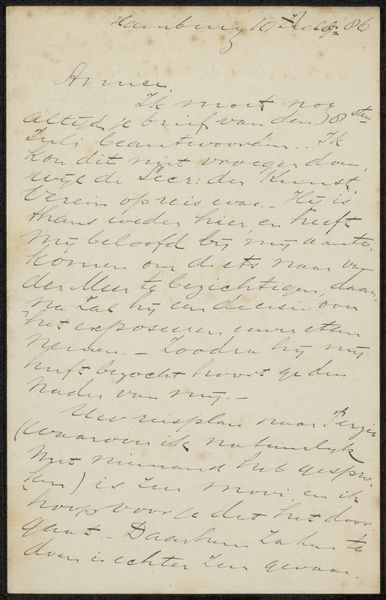 Hamburg 10 Feb 86
Amice.
Ik moet nog
altijd je brief van den 8sten
Juli beantwoorden. Ik
kon dit niet vroeger doen,
wijl de Secr: der Kunst-
Verein op reis was. Hij is
thans weder hier, en heeft
mij beloofd bij mij aan te
komen om de ets naar v/
der Meer te bezichtigen, daar-
na zal hij een decisie over
het exposeeren uwer etsen
nemen. — Zoodra hij mij
heeft bezocht hoort ge den
nader van mij. —
Uw reisplan naar Perzie
(waarover ik natuurlijk
met niemand heb gespro-
ken) is zeer mooi, en ik
hoop voor je dat het door-
gaat. Daarheen zaken te
doen is echter zeer gevaar-